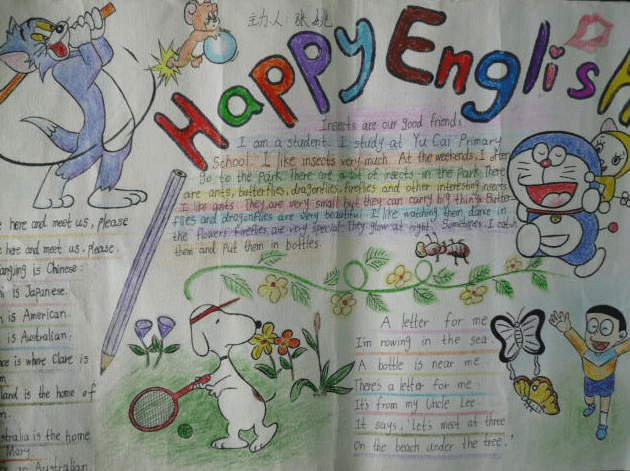 主办人:张姚
Happy English
Insects are our good friends
I am a student. I study at Yu Cai Primary
School. I like insects very much. At the weekends, I often
Go to the park. There are a lot of insects in the park. There
are ants, butterflies, dragonflies, fireflies and other interesting insects
I like ants They are very small but they can carry big things. Butter-
flies and dragonflies are very beautiful. I like watching them dance in
the flowers fireflies are very special They glow at night. Sometimes I catch
them and put them in bottles.
here and meet us, please
here and meet us, please.
is Chinese.
is Japanese.
is American.
is Australian.
is where Clare is
land is the home of
is the home
Mary.
an Australian.
A letter for me
I'm rowing in the sea.
A bottle is near me
There's a letter for me.
It's from my Uncle Lee.
It says, Let's meet at three
On the beach under the tree.'